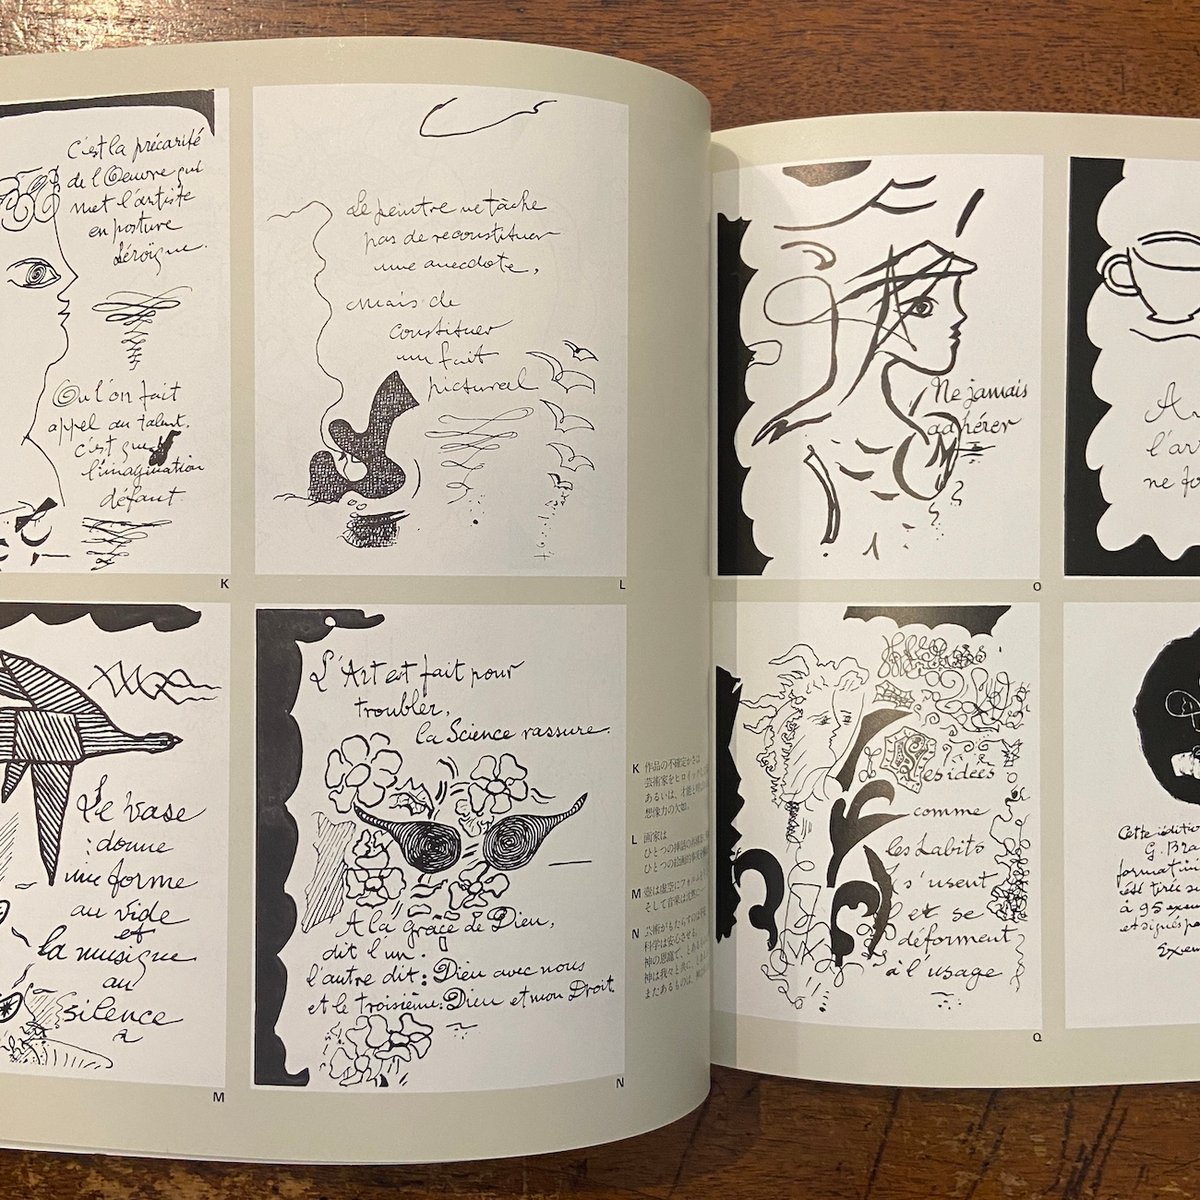 c'est la précarité
de l'Oeuvre qui
met l'artiste
en posture
héroïque.
Où l'on fait
appel au talent,
c'est que
l'imagination
défaut
K
Le peintre ne tâche
pas de reconstituer
une anecdote,
mais de
constituer
un fait
pictural
L
Le vase
donne
une forme
au vide
et
la musique
au
silence
M
L'Art est fait pour
troubler,
la Science rassure.
A la grâce de Dieu,
dit l'un.
l'autre dit: Dieu avec nous
et le troisième: Dieu et mon Droit.
N
K 作品の不確定かさは
芸術家をヒロイック
あるいは、才能と
想像力の欠如。
L 画家は
ひとつの挿話の再構成
ひとつの絵画的事実を
M 壺は虚空にフォルムを
そして音楽は沈黙に
N 芸術がもたらすのは
科学は安心させる。
神の恩寵で、とある
神は我々と共に、と
またあるものは、神
Ne jamais
adhérer
O
A
l'ar
ne fo
les idées
comme
les habits
s'usent
et se
déforment
à l'usage
Q
Cette éditio
G. Bra
format in
est tirée su
à 95 exem
et signés pa
Exem